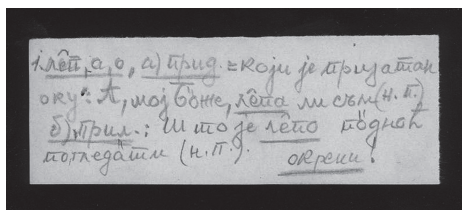 1. лêп, а, о, а) прид. = који је пријатан
оку: А, мој Бöже, лêпа ли съм (н. п.)
б) прил.: Што је лêпо пöдноћ
погледäти (н. п.). окрени!